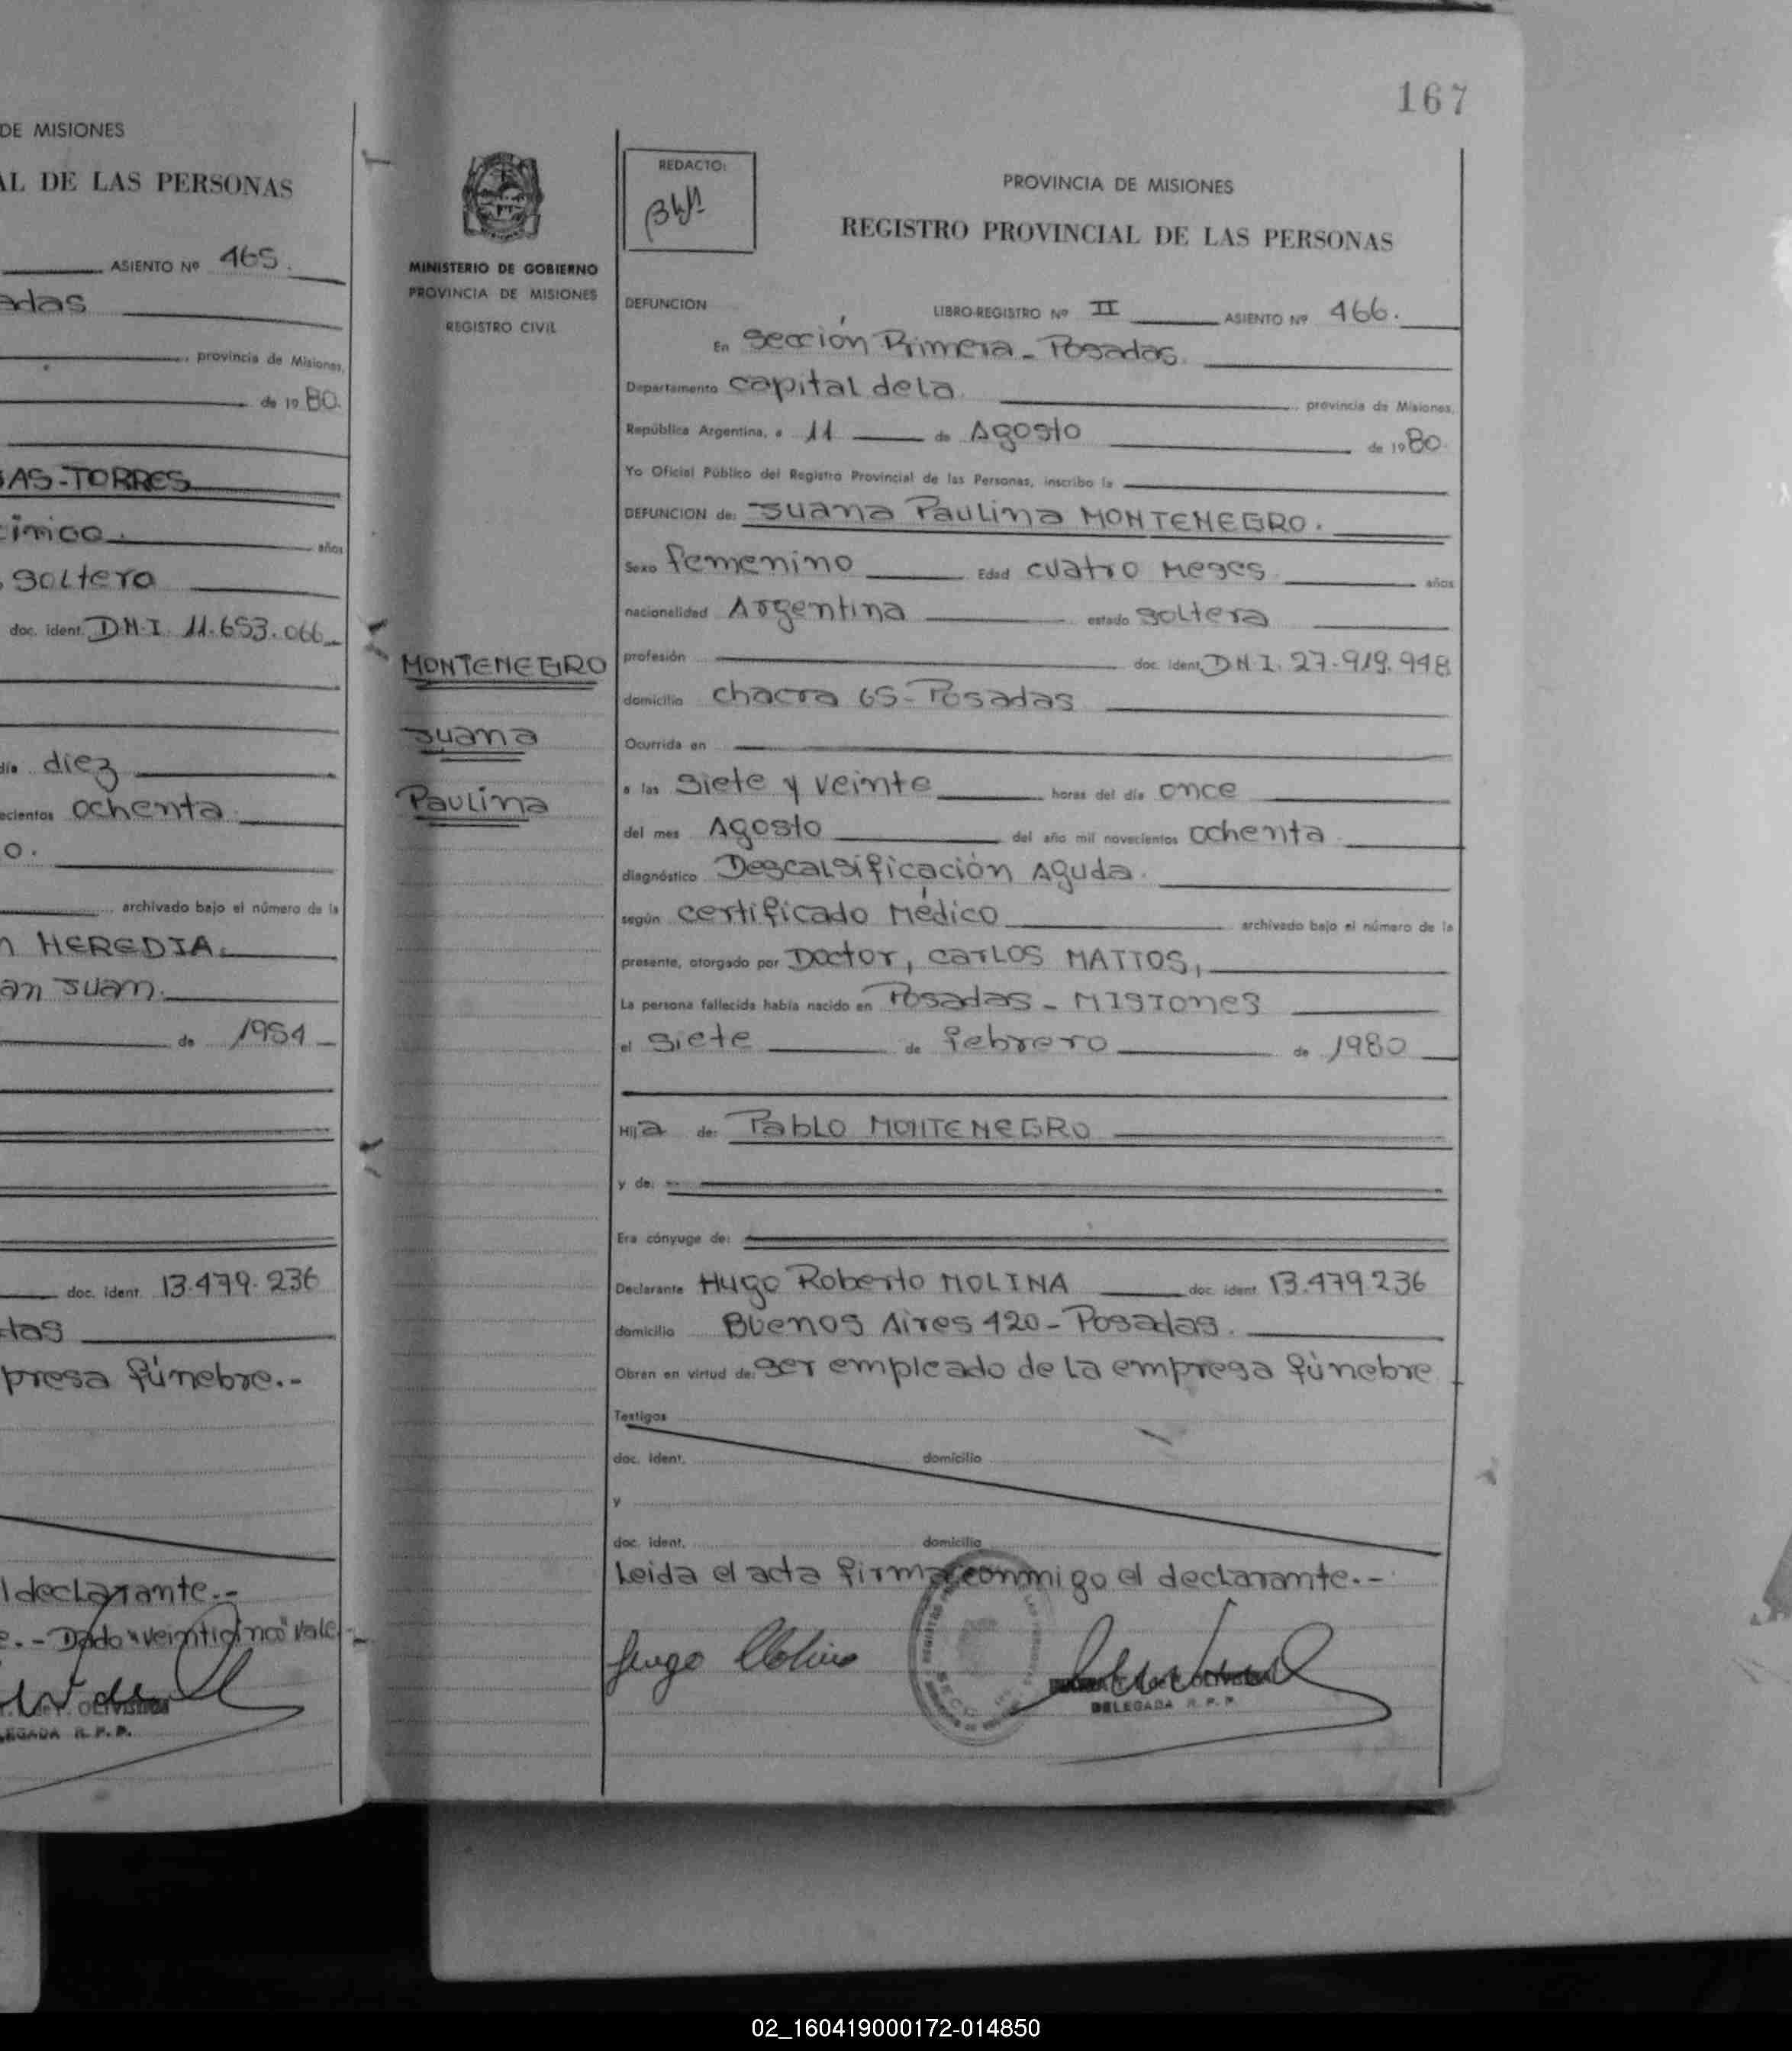 DE MISIONES
AL DE LAS PERSONAS
ASIENTO Nº 465.
adas
, provincia de Misiones,
de 1980.
GAS-TORRES
años
soltero
doc. ident. D.N.I. 11.653.066
día diez
ecientos ochenta
o.
archivado bajo el número de la
n HEREDIA.
an Juan.
de 1954
doc. ident. 13.479.236
das
presa fúnebre.-
l declarante.-
e.- Dado "veinticinco" vale.-
LEGADA R. P. P.
167
MINISTERIO DE GOBIERNO
PROVINCIA DE MISIONES
REGISTRO CIVIL
MONTENEGRO
Juana
Paulina
REDACTO:
PROVINCIA DE MISIONES
REGISTRO PROVINCIAL DE LAS PERSONAS
DEFUNCION LIBRO-REGISTRO Nº II ASIENTO Nº 466.
En Sección Primera - Posadas.
Departamento Capital de la provincia de Misiones,
República Argentina, a 11 de Agosto de 1980.
Yo Oficial Público del Registro Provincial de las Personas, inscribo la
DEFUNCION de: Juana Paulina MONTENEGRO.
Sexo femenino Edad cuatro meses años
nacionalidad Argentina estado soltera
profesión doc. ident. D.N.I. 27.919.948
domicilio chacra 65 - Posadas
Ocurrida en
a las siete y veinte horas del día once
del mes Agosto del año mil novecientos ochenta.
diagnóstico Descalsificación Aguda.
según certificado Médico archivado bajo el número de la
presente, otorgado por Doctor, CARLOS MATTOS,
La persona fallecida había nacido en Posadas - Misiones
el siete de febrero de 1980
Hija de: Pablo MONTENEGRO
y de:
Era cónyuge de:
Declarante Hugo Roberto MOLINA doc. ident. 13.479.236
domicilio Buenos Aires 420 - Posadas.
Obran en virtud de: ser empleado de la empresa fúnebre
Testigos
doc. ident. domicilio
y
doc. ident. domicilio
Leida el acta firma conmigo el declarante.-
Hugo Molina
DELEGADA R. P. P.
02_160419000172-014850